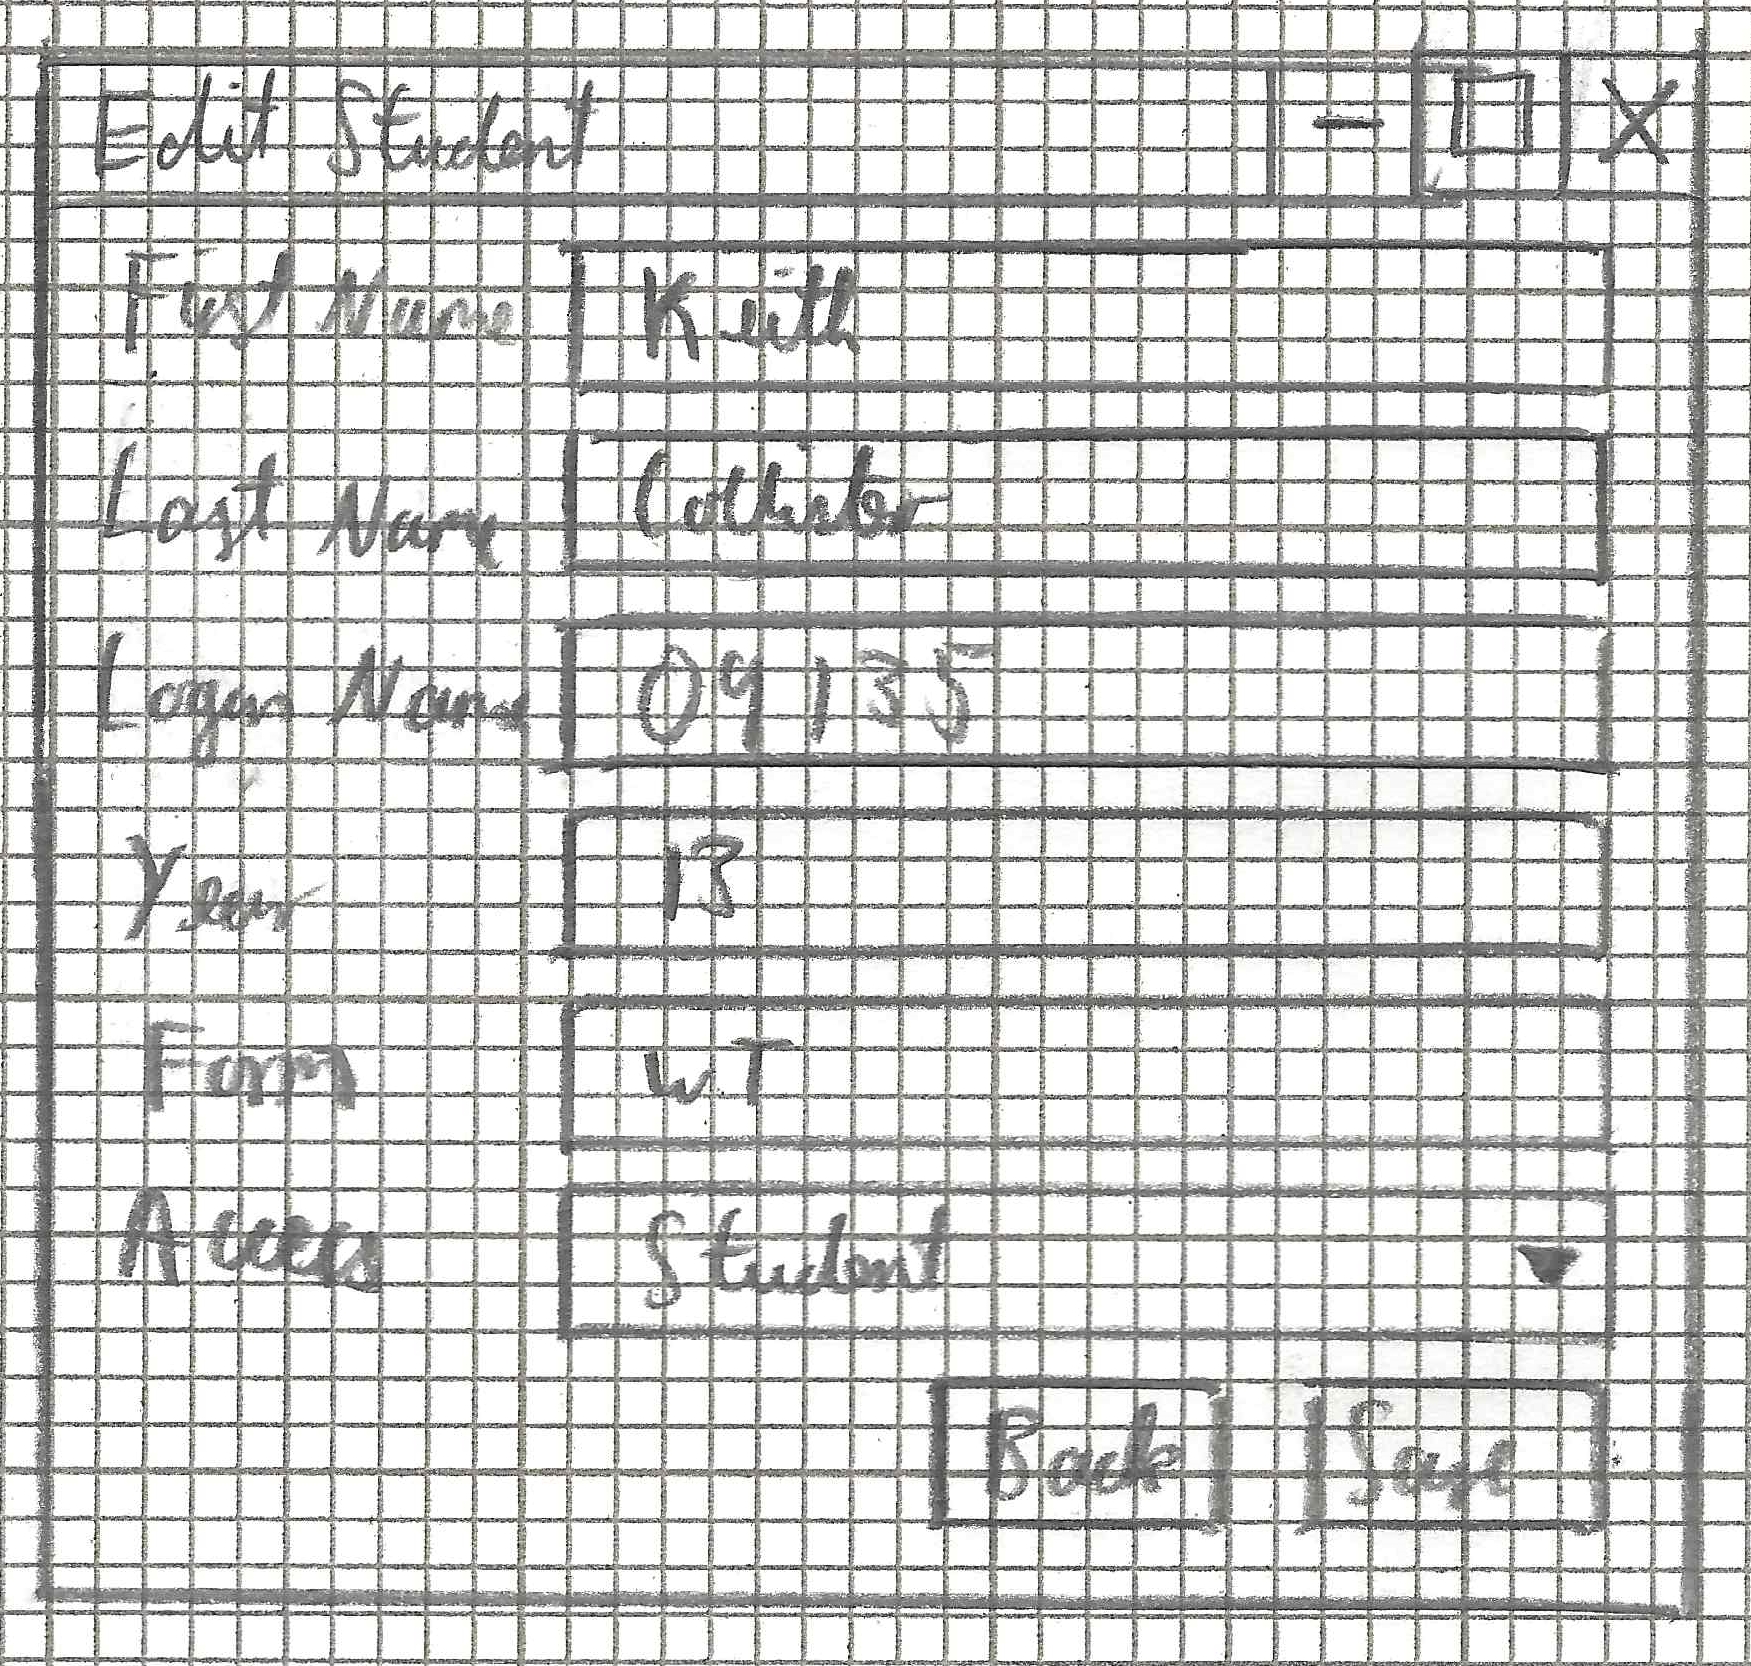 Edit Student - X
First Name Keith
Last Name Collister
Logon Name 09135
Year 13
Form WT
Access Student
Back Save